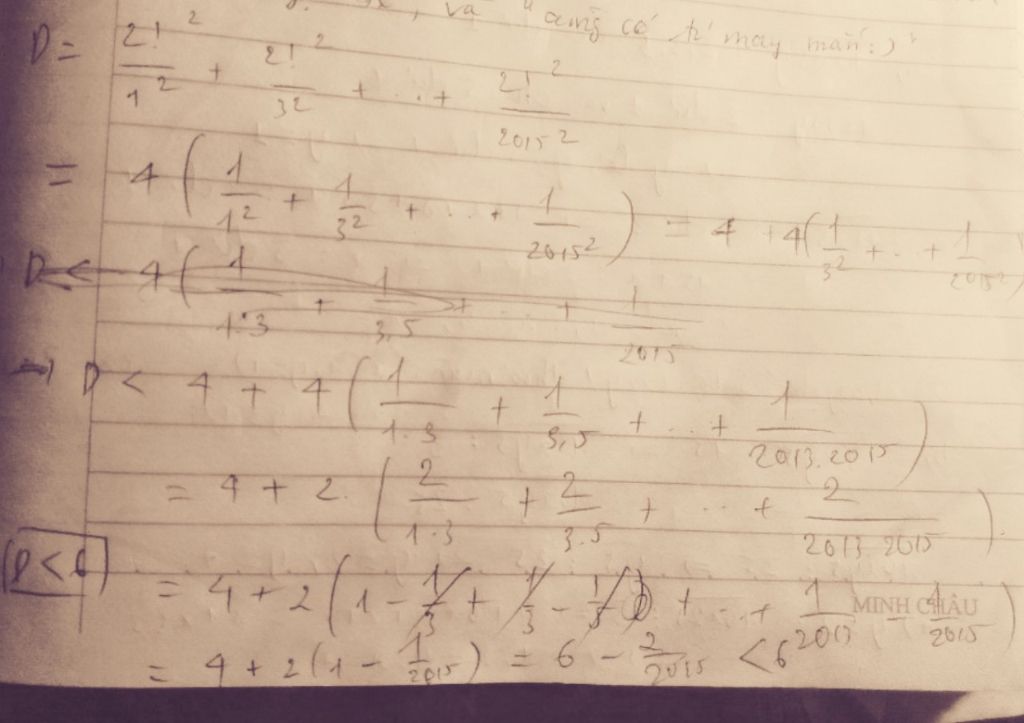 , và " cũng có tí may mắn :) "
D = 2!²/1² + 2!²/3² + ... + 2!²/2015²
= 4 ( 1/1² + 1/3² + ... + 1/2015² ) = 4 + 4( 1/3² + ... + 1/2015² )
D < 4 ( 1/1.3 + 1/3.5 + ... + 1/2015
D < 4 + 4 ( 1/1.3 + 1/3.5 + ... + 1/2013.2015 )
= 4 + 2. ( 2/1.3 + 2/3.5 + ... + 2/2013.2015 ).
D < 6
= 4 + 2 ( 1 - 1/3 + 1/3 - 1/5 + ... + 1/2013 - 1/2015 )
MINH CHÂU
= 4 + 2 ( 1 - 1/2015 ) = 6 - 2/2015 < 6